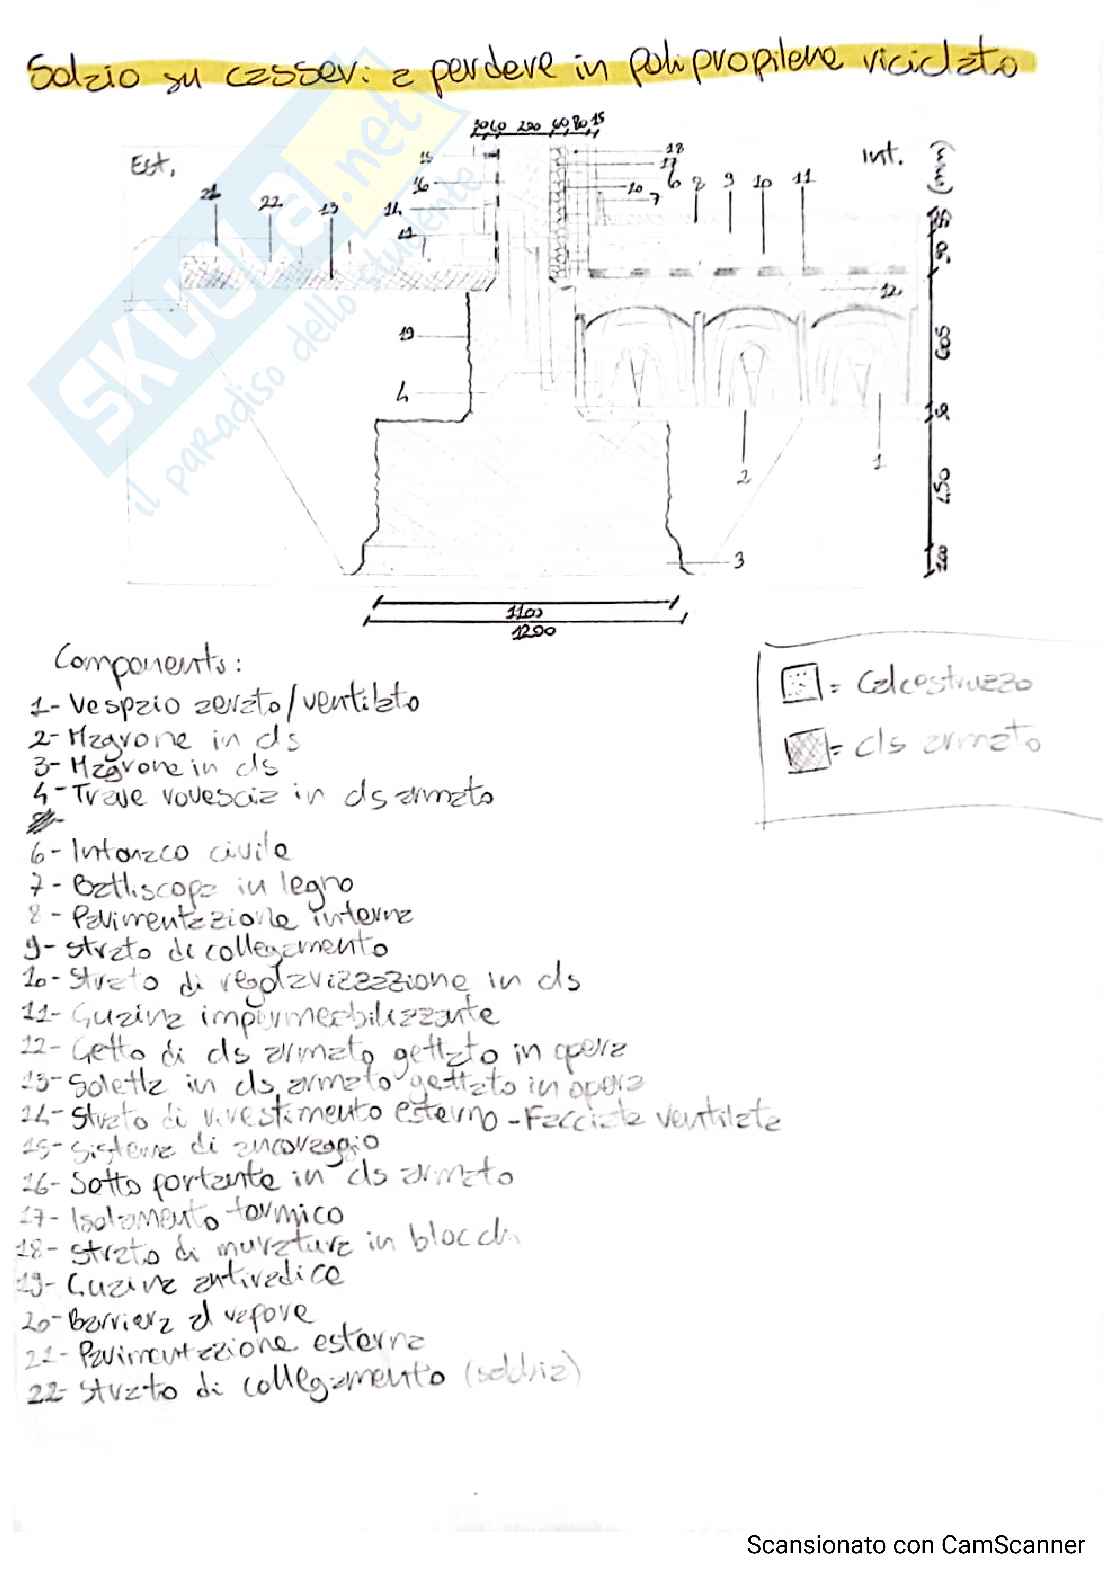 Solaio su casseri a perdere in polipropilene riciclato
200 60 80 15
Est.
Int.
(mm)
15
18
17
16
6 8 9 10 11
20
7
21
22
13
14
11
90
12
19
605
4
2
1
450
3
200
1100
1200
Components:
1- Vespaio aerato/ventilato
2- Magrone in cls
3- Magrone in cls
4- Trave rovescia in cls armato
6- Intonaco civile
7- Battiscopa in legno
8- Pavimentazione interna
9- Strato di collegamento
10- Strato di regolarizzazione in cls
11- Guaina impermeabilizzante
12- Getto di cls armato gettato in opera
13- Soletta in cls armato gettato in opera
14- Strato di rivestimento esterno - Facciata ventilata
15- Sistema di ancoraggio
16- Setto portante in cls armato
17- Isolamento termico
18- Strato di muratura in blocchi
19- Guaina antiradice
20- Barriera al vapore
21- Pavimentazione esterna
22- Strato di collegamento (sabbia)
= Calcestruzzo
= cls armato
SKUOLA.net
il paradiso dello studente
Scansionato con CamScanner